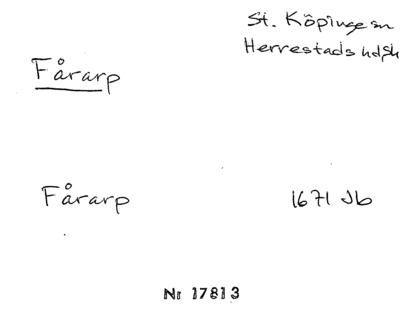 St. Köpinge sn
Herrestads hd, Sk
Fårarp
Fårarp 1671 Jb
Nr 17813